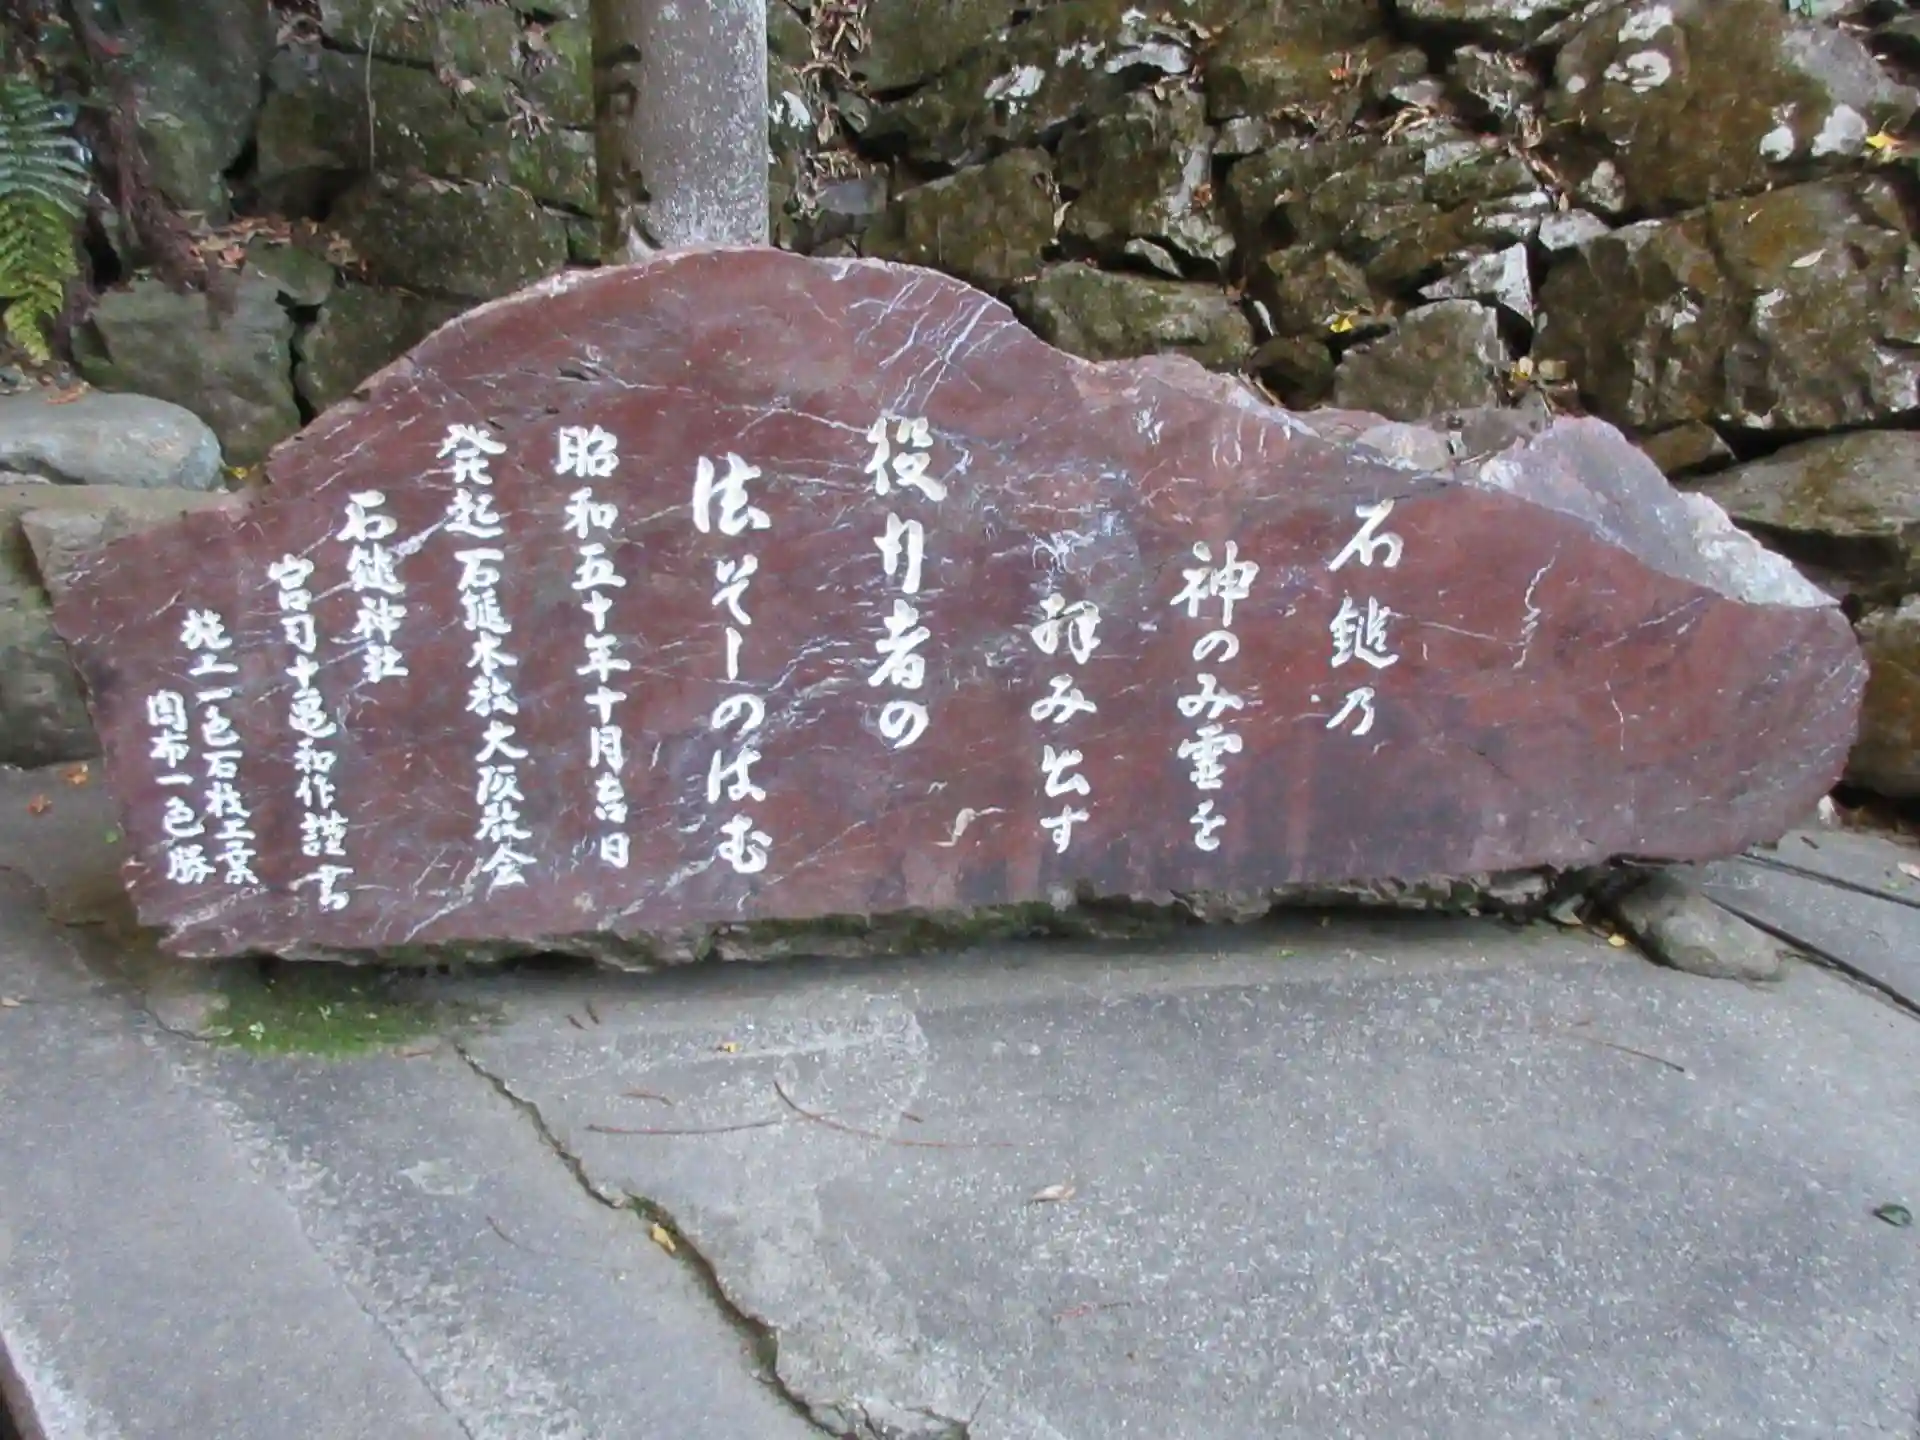 石鎚乃
神のみ霊を
拝み出す
役行者の
法そしのはむ
昭和五十年十月吉日
発起石鎚本教大阪教会
石鎚神社
宮司十亀和作謹書
施工一色石材工業
周布一色勝